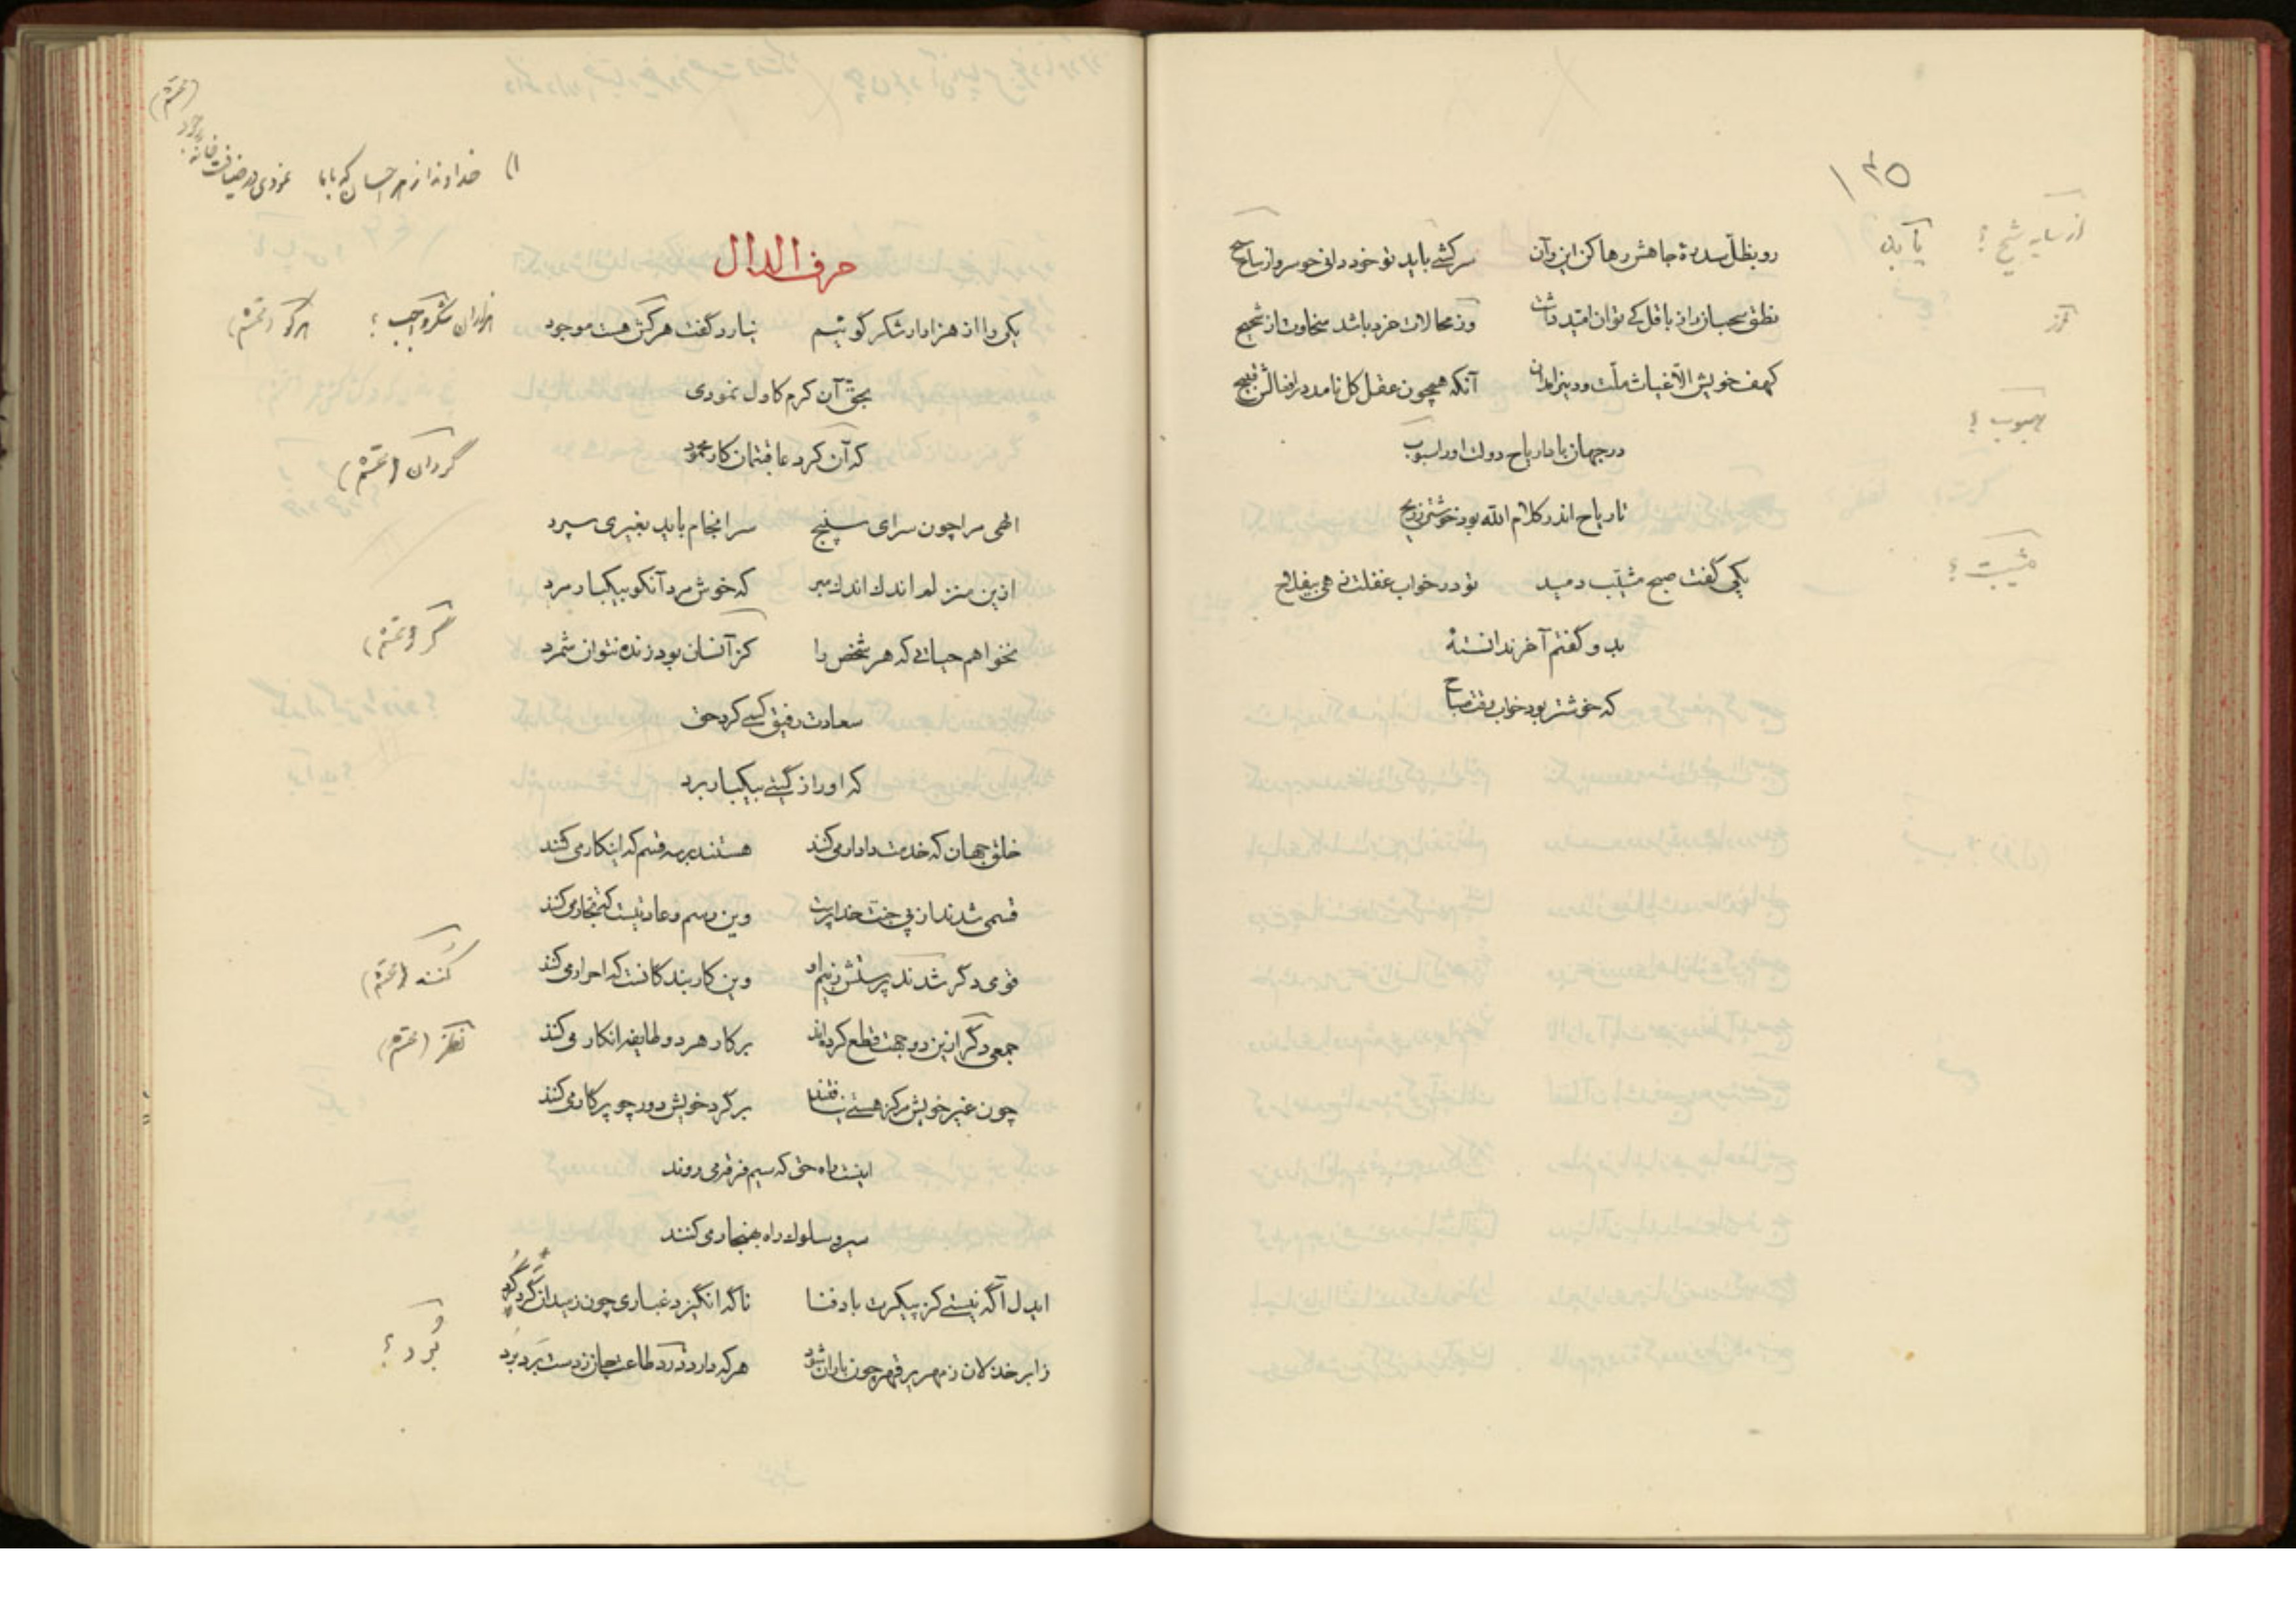 ۱۳۵
رو بظلّ سدرهٔ جاهش رها کن این و آن سرکشی باید تو خود دانی جو سرو از
از سایه شیخ ؟
نطق سحبان را از باقل کی توان امید داشت وز محالات خرد باشد سخاوت از شحیح
کهف خویش الاّ غیاث ملّت و دین آنکه همچون عقل کل نامد در افعالش قبیح
در جهان بادا ریاح دولت او را
تا ریاح اندر کلام الله بود خوشتر ز ریح
یکی گفت صبح مشیّب دمید تو در خواب غفلت نی
مشیبت ؟
بدو گفتم آخر ندانستهٔ
که خوشتر بود خواب وقت صباح
۱) خداوندا ز هر احسان که با ما نمودی در ضیافت خانه جود
حرف الدال
یکی را از هزاران شکر گوئیم نیارد گفت هرکش هست موجود
هزاران شکر واجب ؟
بحق آن کرم کاول نمودی
که آن کرد عاقبتمان کار محمود
گردان
الهی مرا چون سرای سپنج سرانجام باید بغیری سپرد
ازین منزلم اندک اندک مبر که خوش مرد آنکو بیکبار مرد
نخواهم حیاتی که هر شخص را کز آنسان بود زنده نتوان شمرد
سعادت رفیق کسی کرد حق
که او را ز گیتی بیکبار برد
خلق جهان که خدمت دادار می کنند هستند بر سه قسم که اینکار می کنند
قسمی شدند از پی جنت خدا پرست وین رسم و عادتیست که تجار می کنند
قومی دگر شدند پرستش ز بیم او وین کار بندگانست که احرار می کنند
جمعی دگر ازین دو جهت قطع کرده‌اند بر کار هر دو طایفه انکار می کنند
نظر
چون غیر خویش مرکز هستی نیافتند بر گرد خویش دور چو پرگار می کنند
اینست راه حق که سیم فرقه می روند
سیر و سلوک راه بهنجار می کنند
ایدل آگه نیستی کز پیکرت باد فنا ناگه انگیزد غباری چون ز میدان گرد گرد
ز ابر خذلان زمهریر قهر چون باران شود هر که دارد دُرد طاعت جان ز دست بَرد بُرد
بَرد ؟